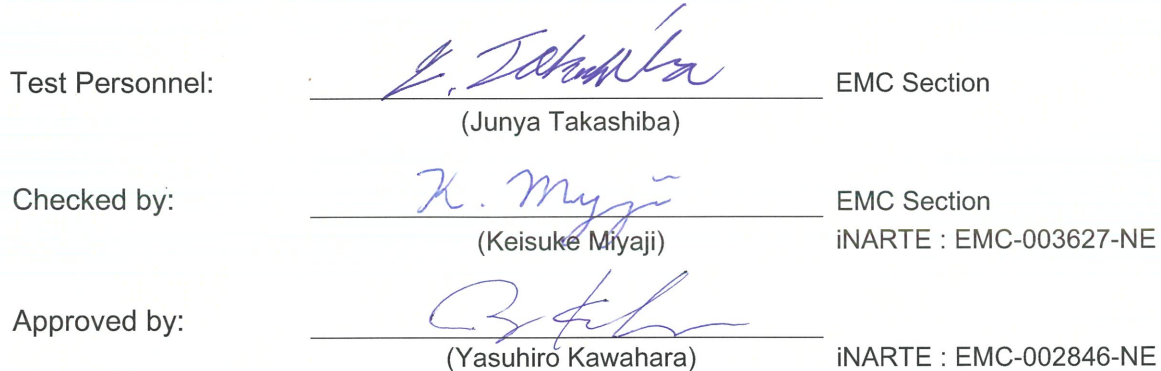 Test Personnel: J. Takashiba EMC Section
(Junya Takashiba)
Checked by: K. Miyaji EMC Section
(Keisuke Miyaji) iNARTE : EMC-003627-NE
Approved by:
(Yasuhiro Kawahara) iNARTE : EMC-002846-NE